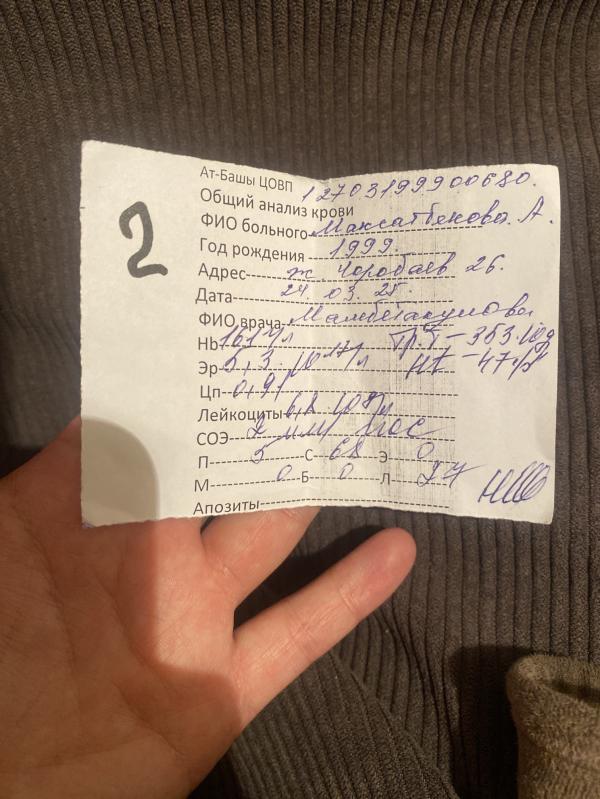 2
Ат-Башы ЦОВП 12703199900680.
Общий анализ крови
ФИО больного Максатбекова. А.
Год рождения 1999.
Адрес ж. Чоробаев 26.
Дата 24. 03. 25.
ФИО врача Мамбетакунова.
Hb 161 г/л Тр.Т – 353.
Эр 5,3. /л Ht – 47.
Цп 0,91
Лейкоциты 6,8 /л
СОЭ 2 мм/час
П 5 С 68 Э 0
М 0 Б 0 Л 27
Апозиты